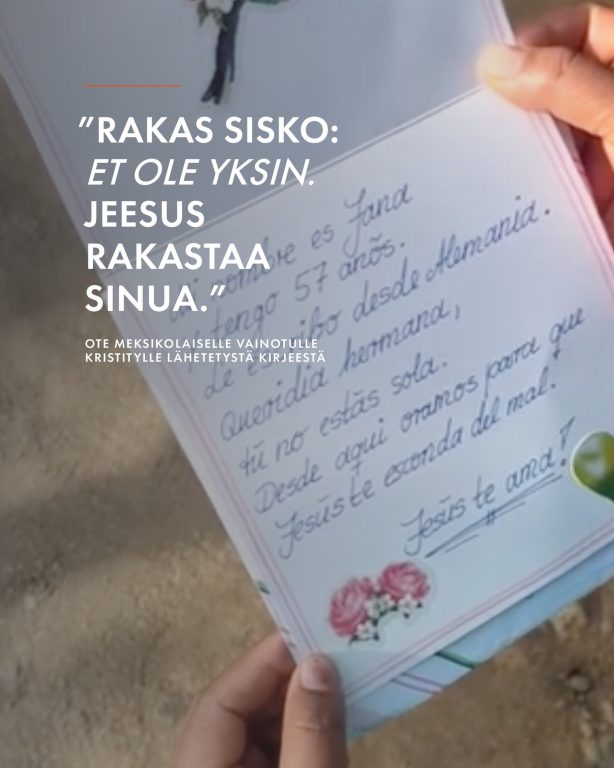 ”RAKAS SISKO:
ET OLE YKSIN.
JEESUS
RAKASTAA
SINUA.”
OTE MEKSIKOLAISELLE VAINOTULLE
KRISTITYLLE LÄHETETYSTÄ KIRJEESTÄ
nombre es Jana
tengo 57 anõs.
Le escribo desde Alemania.
Queridia hermana,
tú no estás sola.
Desde aqui oramos para que
Jesús te esconda del mal.
Jesús te ama!